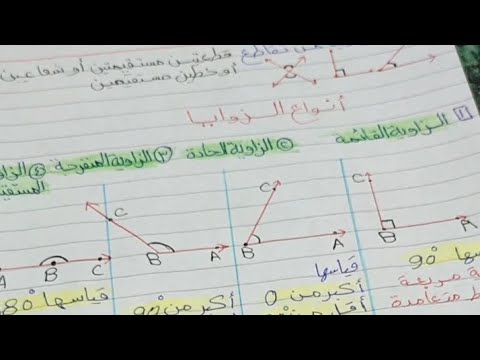 تقاطع قطعتين مستقيمتين أو شعاعين
أو خطين مستقيمين
أنواع الزوايا
① الزاوية القائمة ② الزاوية الحادة ③ الزاوية المنفرجة ④
C
C
C
B A
B A
B A
A B C
90°
قياسها
أكبر من 0
أكبر من 90°
قياسها 180°
متعامدة